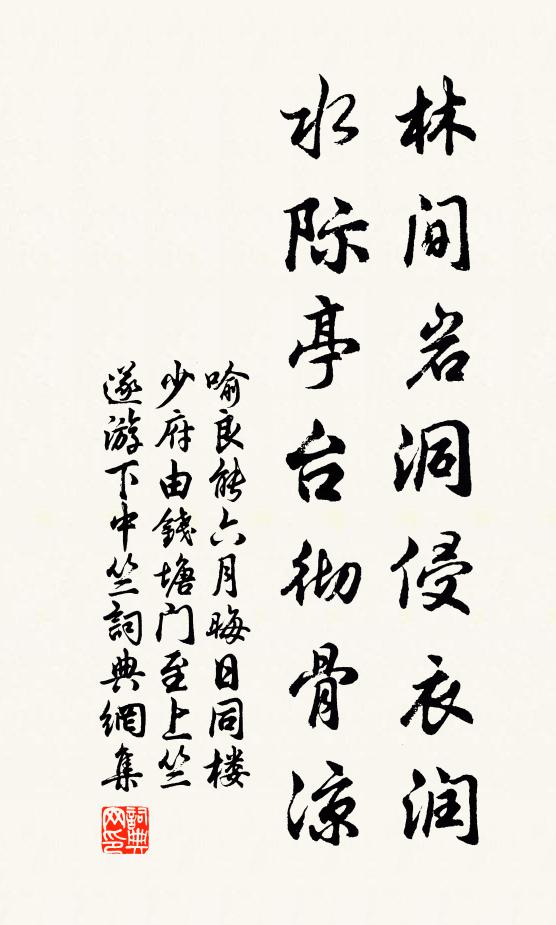 林间岩洞侵衣润
水际亭台彻骨凉
喻良能六月晦日同楼
少府由錢塘门至上竺
遂游下中竺詞典網集
詞典网印